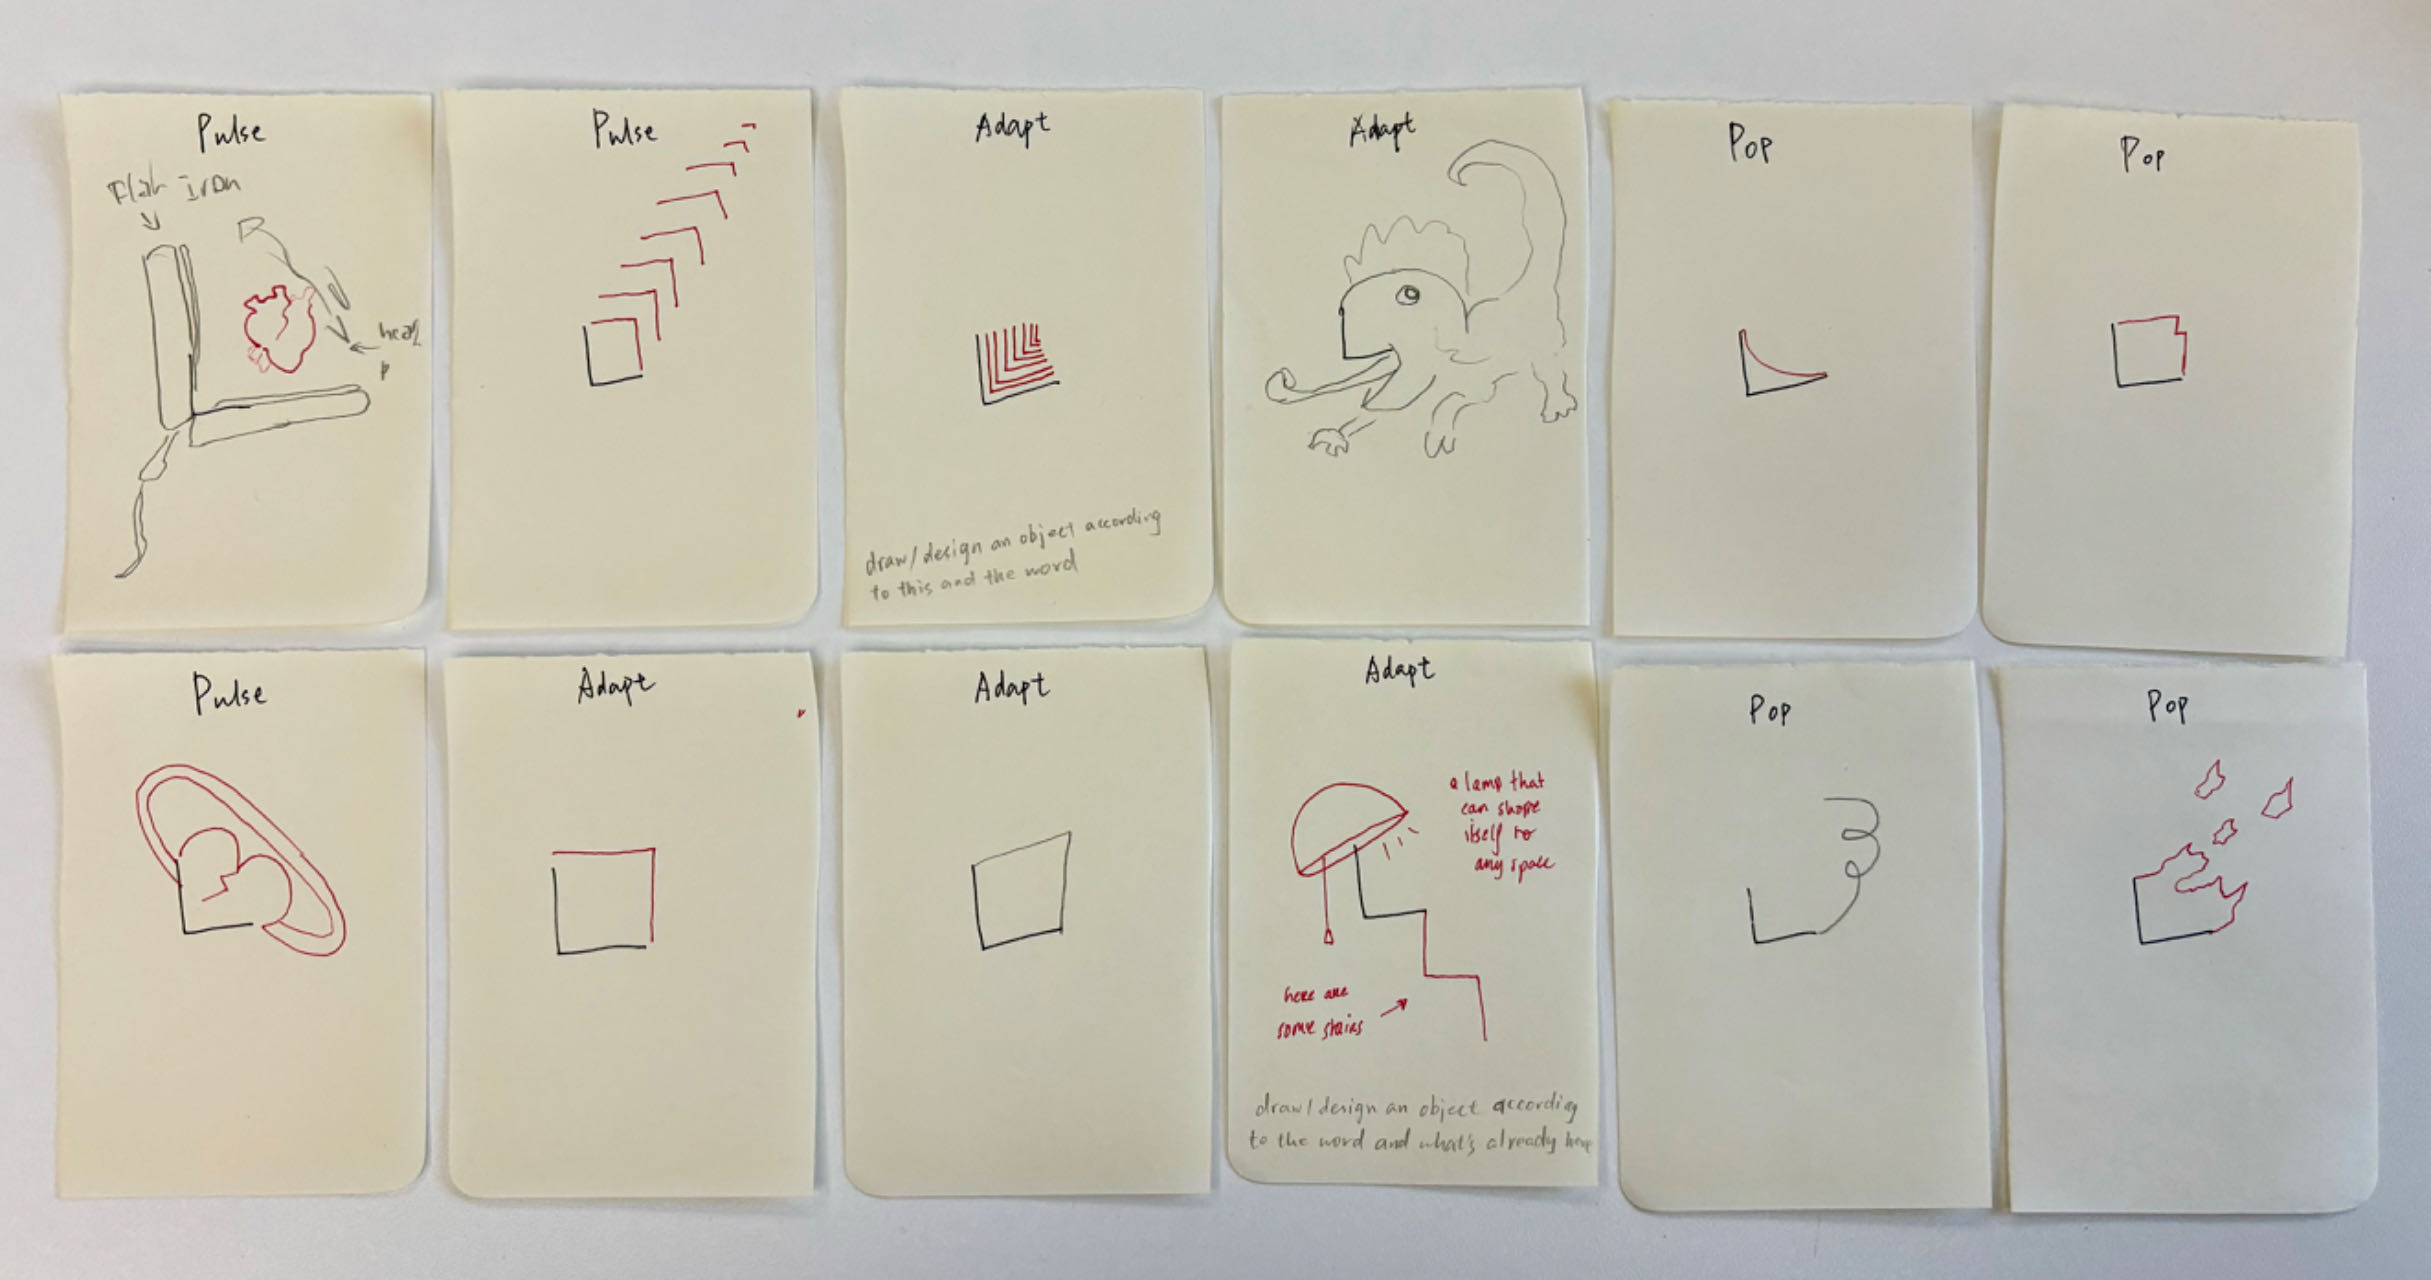 Pulse
Flat iron
Pulse
Adapt
draw/design an object according
to this and the word
Adapt
Pop
Pop
Pulse
Adapt
Adapt
Adapt
a lamp that
can shape
itself to
any space
here are
some stairs
draw/design an object according
to the word and what's already here
Pop
Pop